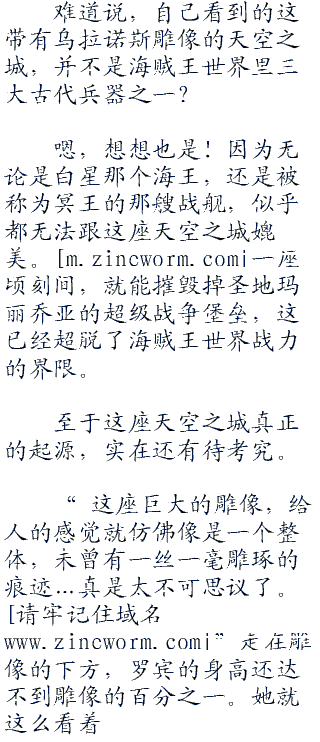 难道说，自己看到的这
带有乌拉诺斯雕像的天空之
城，并不是海贼王世界里三
大古代兵器之一？
嗯，想想也是！因为无
论是白星那个海王，还是被
称为冥王的那艘战舰，似乎
都无法跟这座天空之城媲
美。[m.zincworm.com|一座
顷刻间，就能摧毁掉圣地玛
丽乔亚的超级战争堡垒，这
已经超脱了海贼王世界战力
的界限。
至于这座天空之城真正
的起源，实在还有待考究。
“ 这座巨大的雕像，给
人的感觉就仿佛像是一个整
体，未曾有一丝一毫雕琢的
痕迹…真是太不可思议了。
[请牢记住域名
www.zincworm.com|”走在雕
像的下方，罗宾的身高还达
不到雕像的百分之一。她就
这么看着